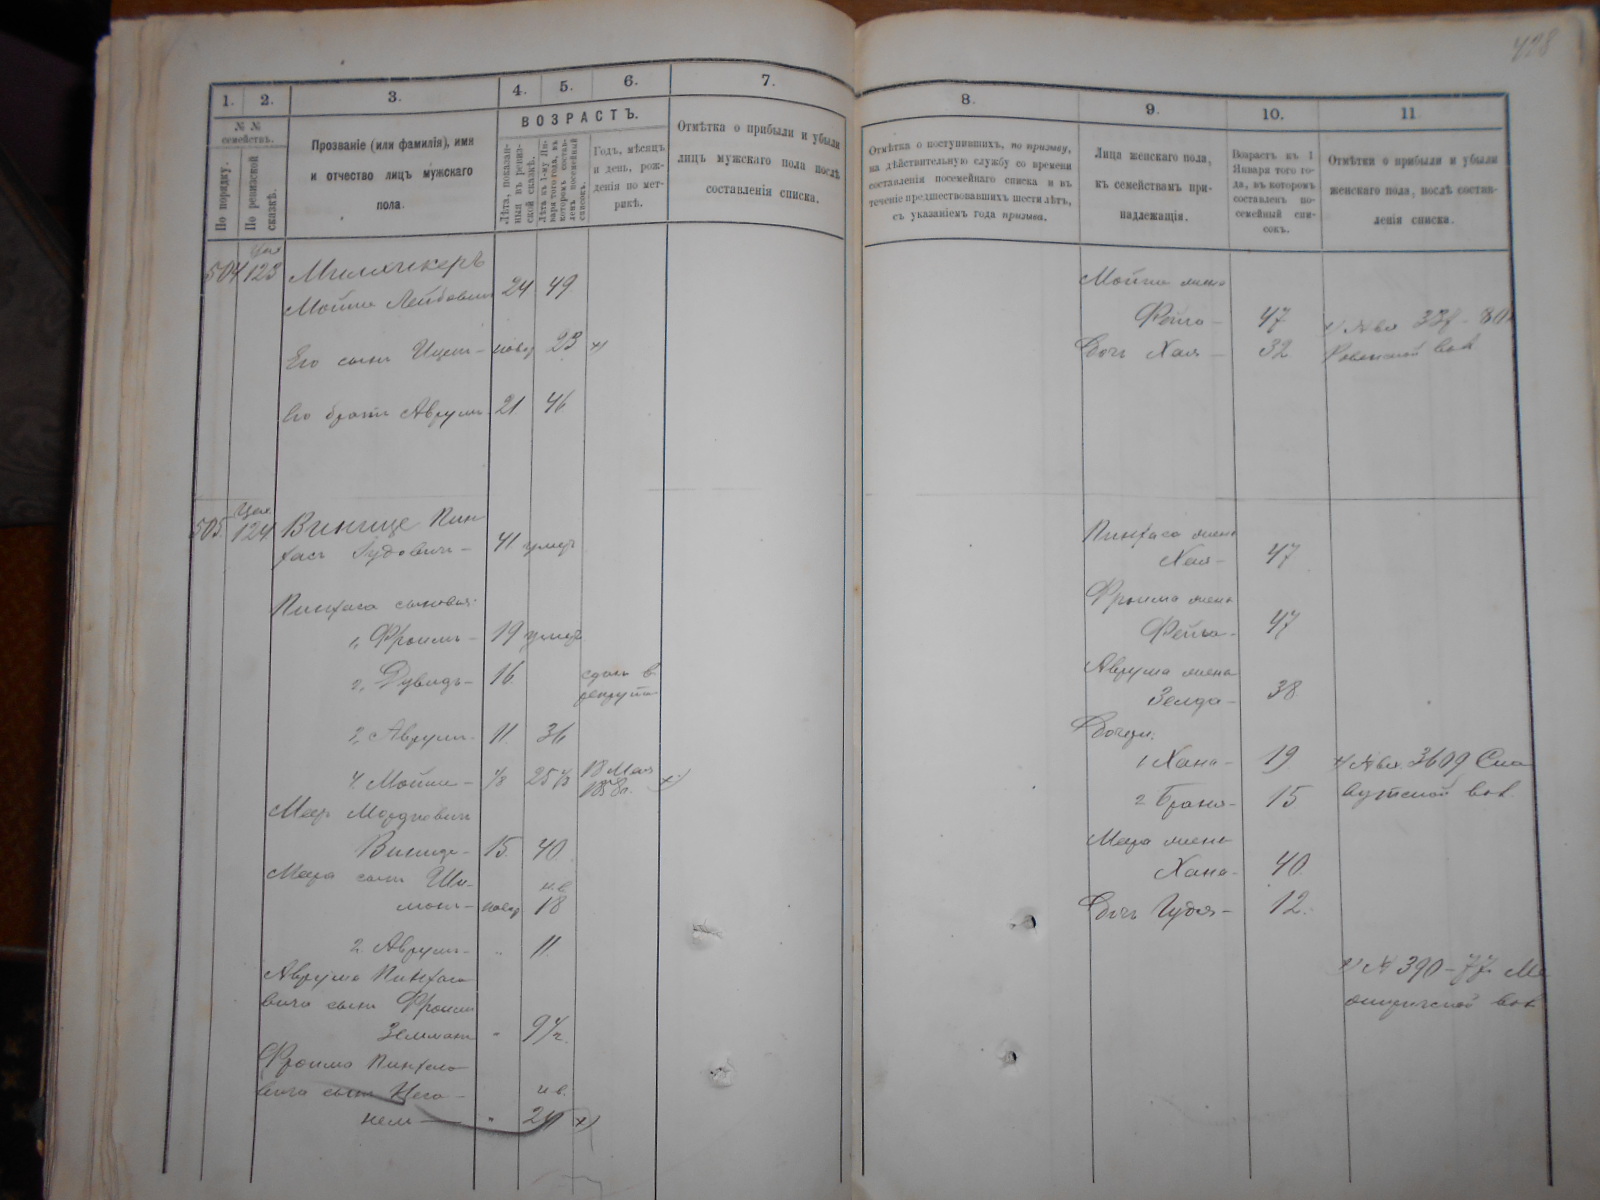 428
1. 2. 3. 4. 5. 6. 7.
№ №
семействъ.
По порядку.
По ревизской
сказкѣ.
Прозваніе (или фамилія), имя
и отчество лицъ мужскаго
пола.
ВОЗРАСТЪ.
Лѣта, показан-
ныя въ ревиз-
ской сказкѣ.
Лѣта къ 1-му Ян-
варя того года, въ
которомъ состав-
ленъ посемейный
списокъ.
Годъ, мѣсяцъ
и день, рож-
денія по мет-
рикѣ.
Отмѣтка о прибыли и убыли
лицъ мужскаго пола послѣ
составленія списка.
504 123 Милхикеръ
Мойше Лейбович 24 49
Его сынъ Ицек - новор 23 х)
Его братъ Аврум - 21 46
505. 124 Винице Пин
хас Іудович - 41 умер
Пинхаса сыновья:
1, Фроимъ - 19 умер
2, Дувидъ - 16 сдан в
рекруты
3, Аврум - 11 36
4. Мойше - ⅓ 25 ⅓ 18 Мая
1858г. х)
Меер Мордкович
Винице - 15 40
Меера сын Ши-
мон - новор 18
2 Аврум - " 11
Аврума Пинхасо
вича сын Фроим
Зельман " 9½
Фроима Пинхасо
вича сын Неса-
нель - " 24 х)
8. 9. 10. 11
Отмѣтка о поступившихъ, по призыву,
на дѣйствительную службу со времени
составленія посемейнаго списка и въ
теченіе предшествовавшихъ шести лѣтъ,
съ указаніемъ года призыва.
Лица женскаго пола,
къ семействамъ при-
надлежащія.
Возрастъ къ 1
Января того го-
да, въ которомъ
составленъ по-
семейный спи-
сокъ.
Отмѣтки о прибыли и убыли
женскаго пола, послѣ состав-
ленія списка.
Мойше жена
Фейга - 47
Дочь Хая - 32
Ровенской вол
Пинхаса жена
Хая - 47
Фроима жена
Фейга - 47
Аврума жена
Зелда - 38
Дочери:
1 Хана - 19 3609 Сла
2 Брана - 15 вутской вол.
Меера жена
Хана - 40
Дочь Гудя - 12.
№ 390 - 77